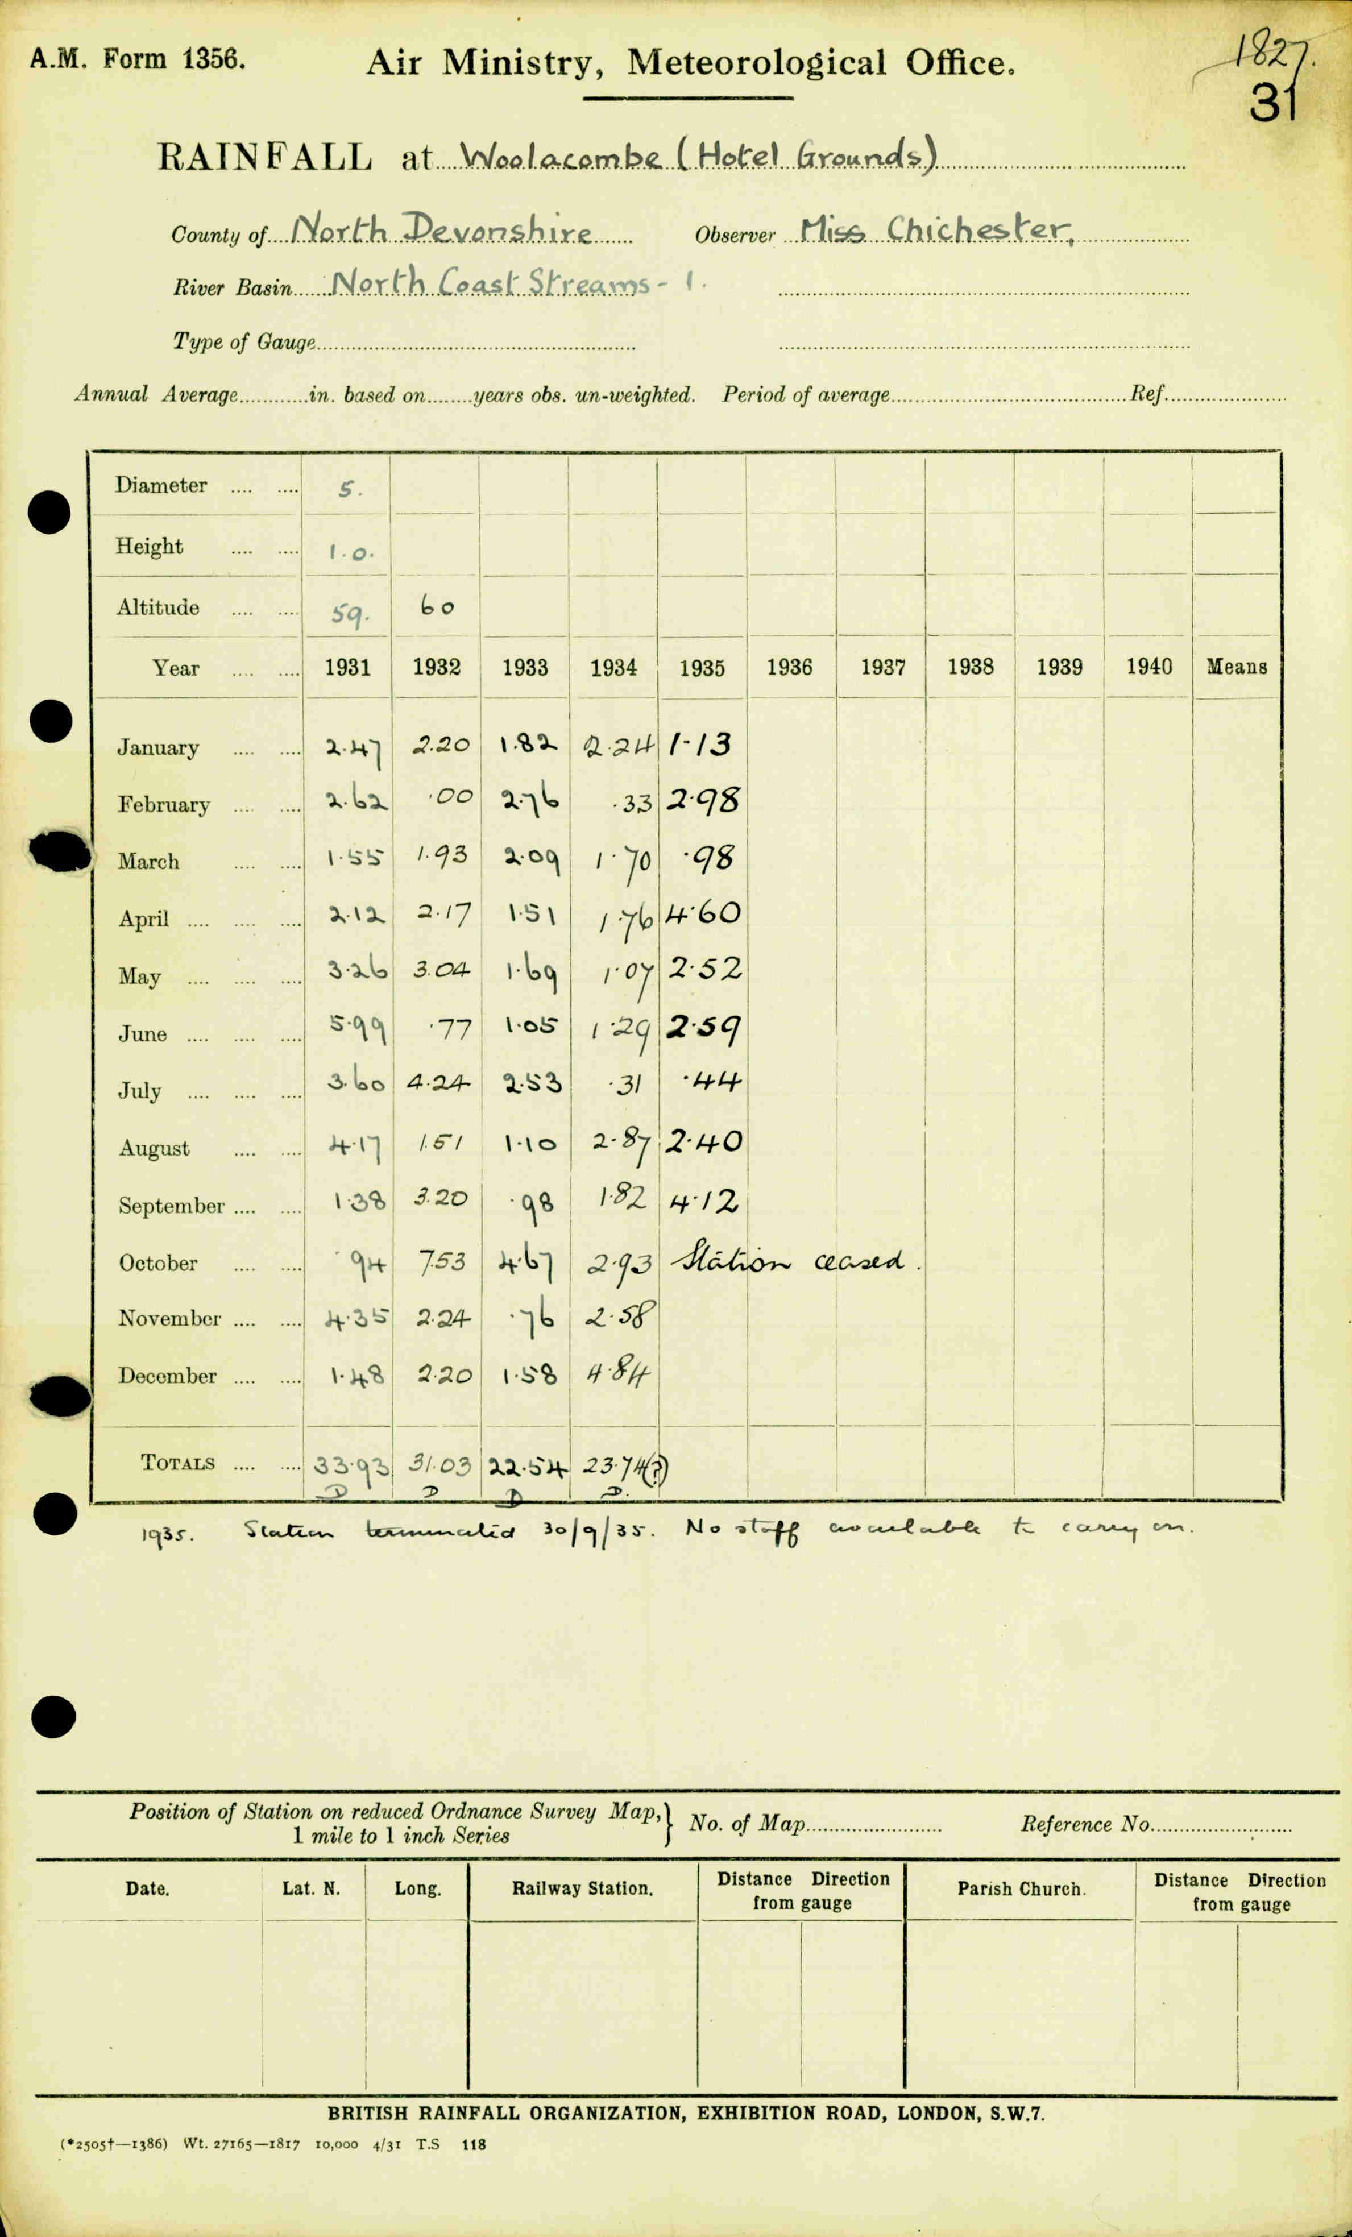 A.M. Form 1356. Air Ministry, Meteorological Office. 1827.
31
RAINFALL at Woolacombe (Hotel Grounds)
County of North Devonshire Observer Miss Chichester,
River Basin North Coast Streams - 1.
Type of Gauge
Annual Average in. based on years obs. un-weighted. Period of average Ref.
Diameter 5.
Height 1.0.
Altitude 59. 60
Year 1931 1932 1933 1934 1935 1936 1937 1938 1939 1940 Means
January 2.47 2.20 1.82 2.24 1.13
February 2.62 .00 2.76 .33 2.98
March 1.55 1.93 2.09 1.70 .98
April 2.12 2.17 1.51 1.76 4.60
May 3.26 3.04 1.69 1.07 2.52
June 5.99 .77 1.05 1.29 2.59
July 3.60 4.24 2.53 .31 .44
August 4.17 1.51 1.10 2.87 2.40
September 1.38 3.20 .98 1.82 4.12
October .94 7.53 4.67 2.93 Station ceased.
November 4.35 2.24 .76 2.58
December 1.48 2.20 1.58 4.84
TOTALS 33.93 31.03 22.54 23.74(?)
D D D D.
1935. Station terminated 30/9/35. No staff available to carry on.
Position of Station on reduced Ordnance Survey Map,} No. of Map Reference No.
1 mile to 1 inch Series
Date. Lat. N. Long. Railway Station. Distance Direction from gauge Parish Church. Distance Direction from gauge
BRITISH RAINFALL ORGANIZATION, EXHIBITION ROAD, LONDON, S.W.7.
(*2505†—1386) Wt. 27165—1817 10,000 4/31 T.S 118